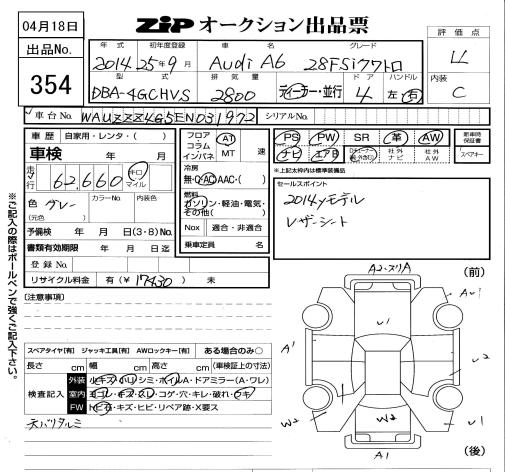 04月18日
ZIP オークション出品票
評価点
出品No.
354
年式 初年度登録 車名 グレード
2014 25年9月 Audi A6 28FSiクワトロ
型式 排気量 ドア ハンドル
DBA-4GCHVS 2800 ディーラー・並行 4 左 右
内装
C
車台No. WAUZZZ4G5EN031972 シリアルNo.
車歴 自家用・レンタ・( )
車検 年 月
走行 62,660 キロ マイル
色 グレー カラーNo. 内装色
(元色 )
予備検 年 月 日(3・8)No.
書類有効期限 年 月 日迄
登録No.
リサイクル料金 有(¥ 17430 ) 未
フロア コラム インパネ AT MT 速
冷房
無・AC・AAC・( )
燃料
ガソリン・軽油・電気・その他( )
Nox 適合・非適合
乗車定員 名
PS PW SR 革 AW
ナビ エアB 社外ナビ 社外AW
新車時保証書
スペアキー
※上記太枠内は標準装備品
セールスポイント
2014yモデル
レザーシート
※ご記入の際はボールペンで強くご記入下さい。
[注意事項]
スペアタイヤ[有] ジャッキ工具[有] AWロックキー[有] ある場合のみ○
長さ cm 幅 cm 高さ cm (車検証上の寸法)
検査記入
外装 小キズ・小凹・シミ・ホイルA・ドアミラー(A・ワレ)
室内 ヨゴレ・キズ・スレ・コゲ・穴・キレ・破れ・ウキ
FW トビ石・キズ・ヒビ・リペア跡・X要ス
天バリタルミ
A2・スリA
(前)
A1
U1
U2
W2
W2
U1
A1
(後)